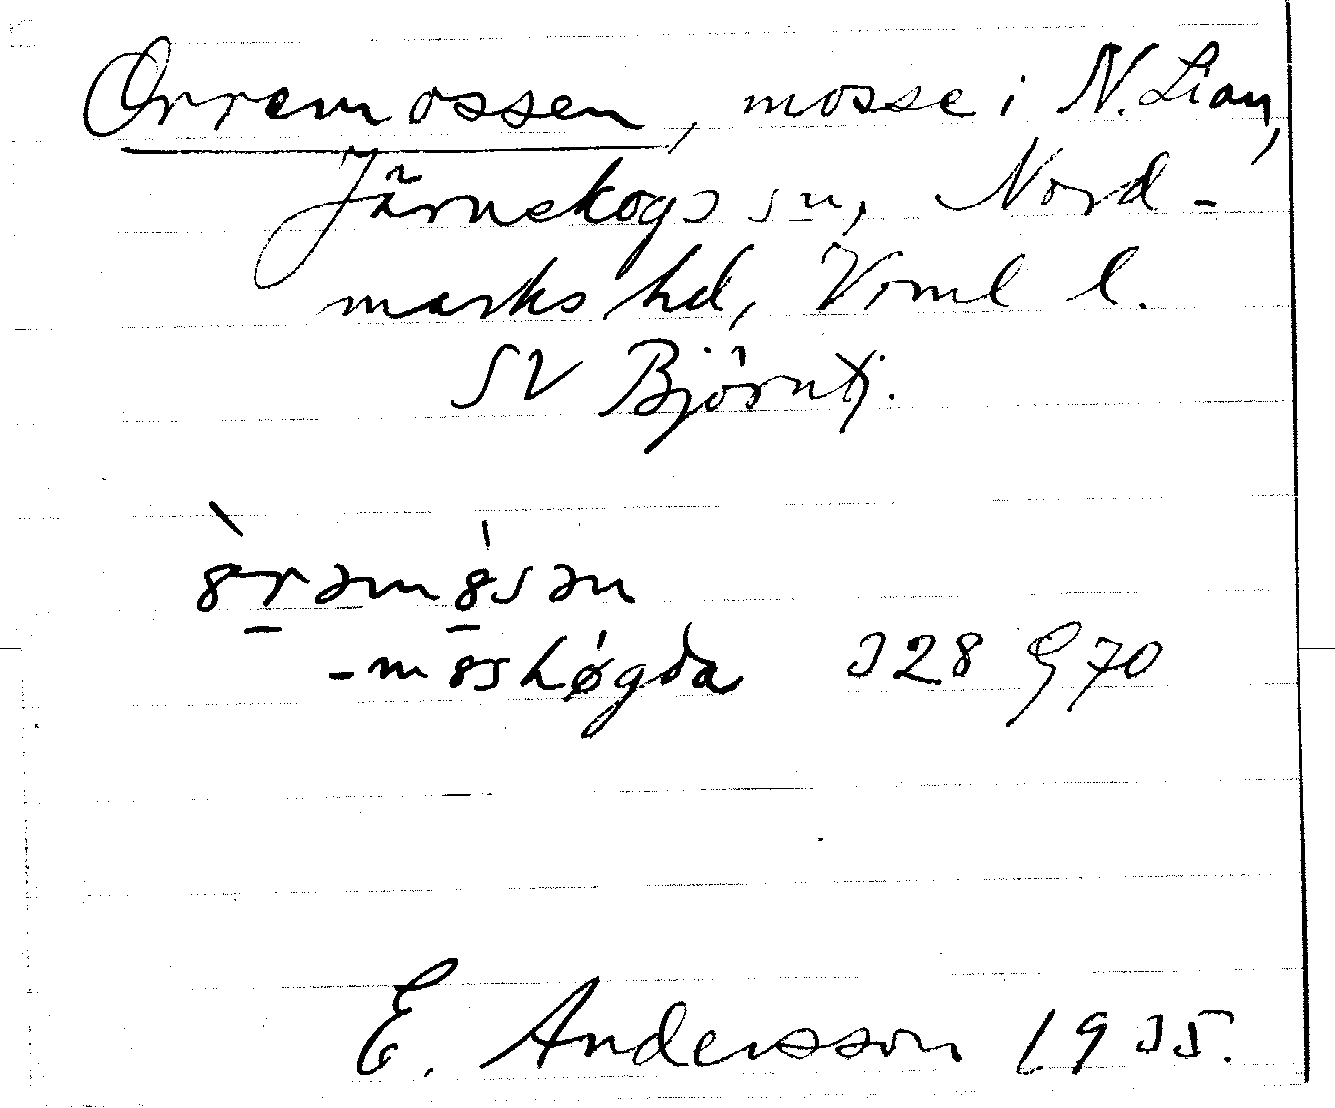 Orremossen, mosse i N. Lian,
Järnskogs sn, Nord-
marks hd, Vrml l.
SV Björntj.
ȣ̀rəmȣ́sən
-mȣshǿgda 328 G 70
E. Andersson 1935.